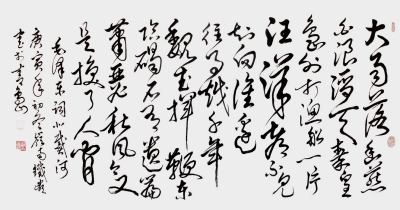 大雨落幽燕
白浪滔天秦皇
島外打漁船一片
汪洋都不見
知向誰邊
往事越千年
魏武揮鞭東
臨碣石有遺篇
蕭瑟秋風今又
是換了人間
毛澤東詞北戴河
庚寅年初冬
書於青島